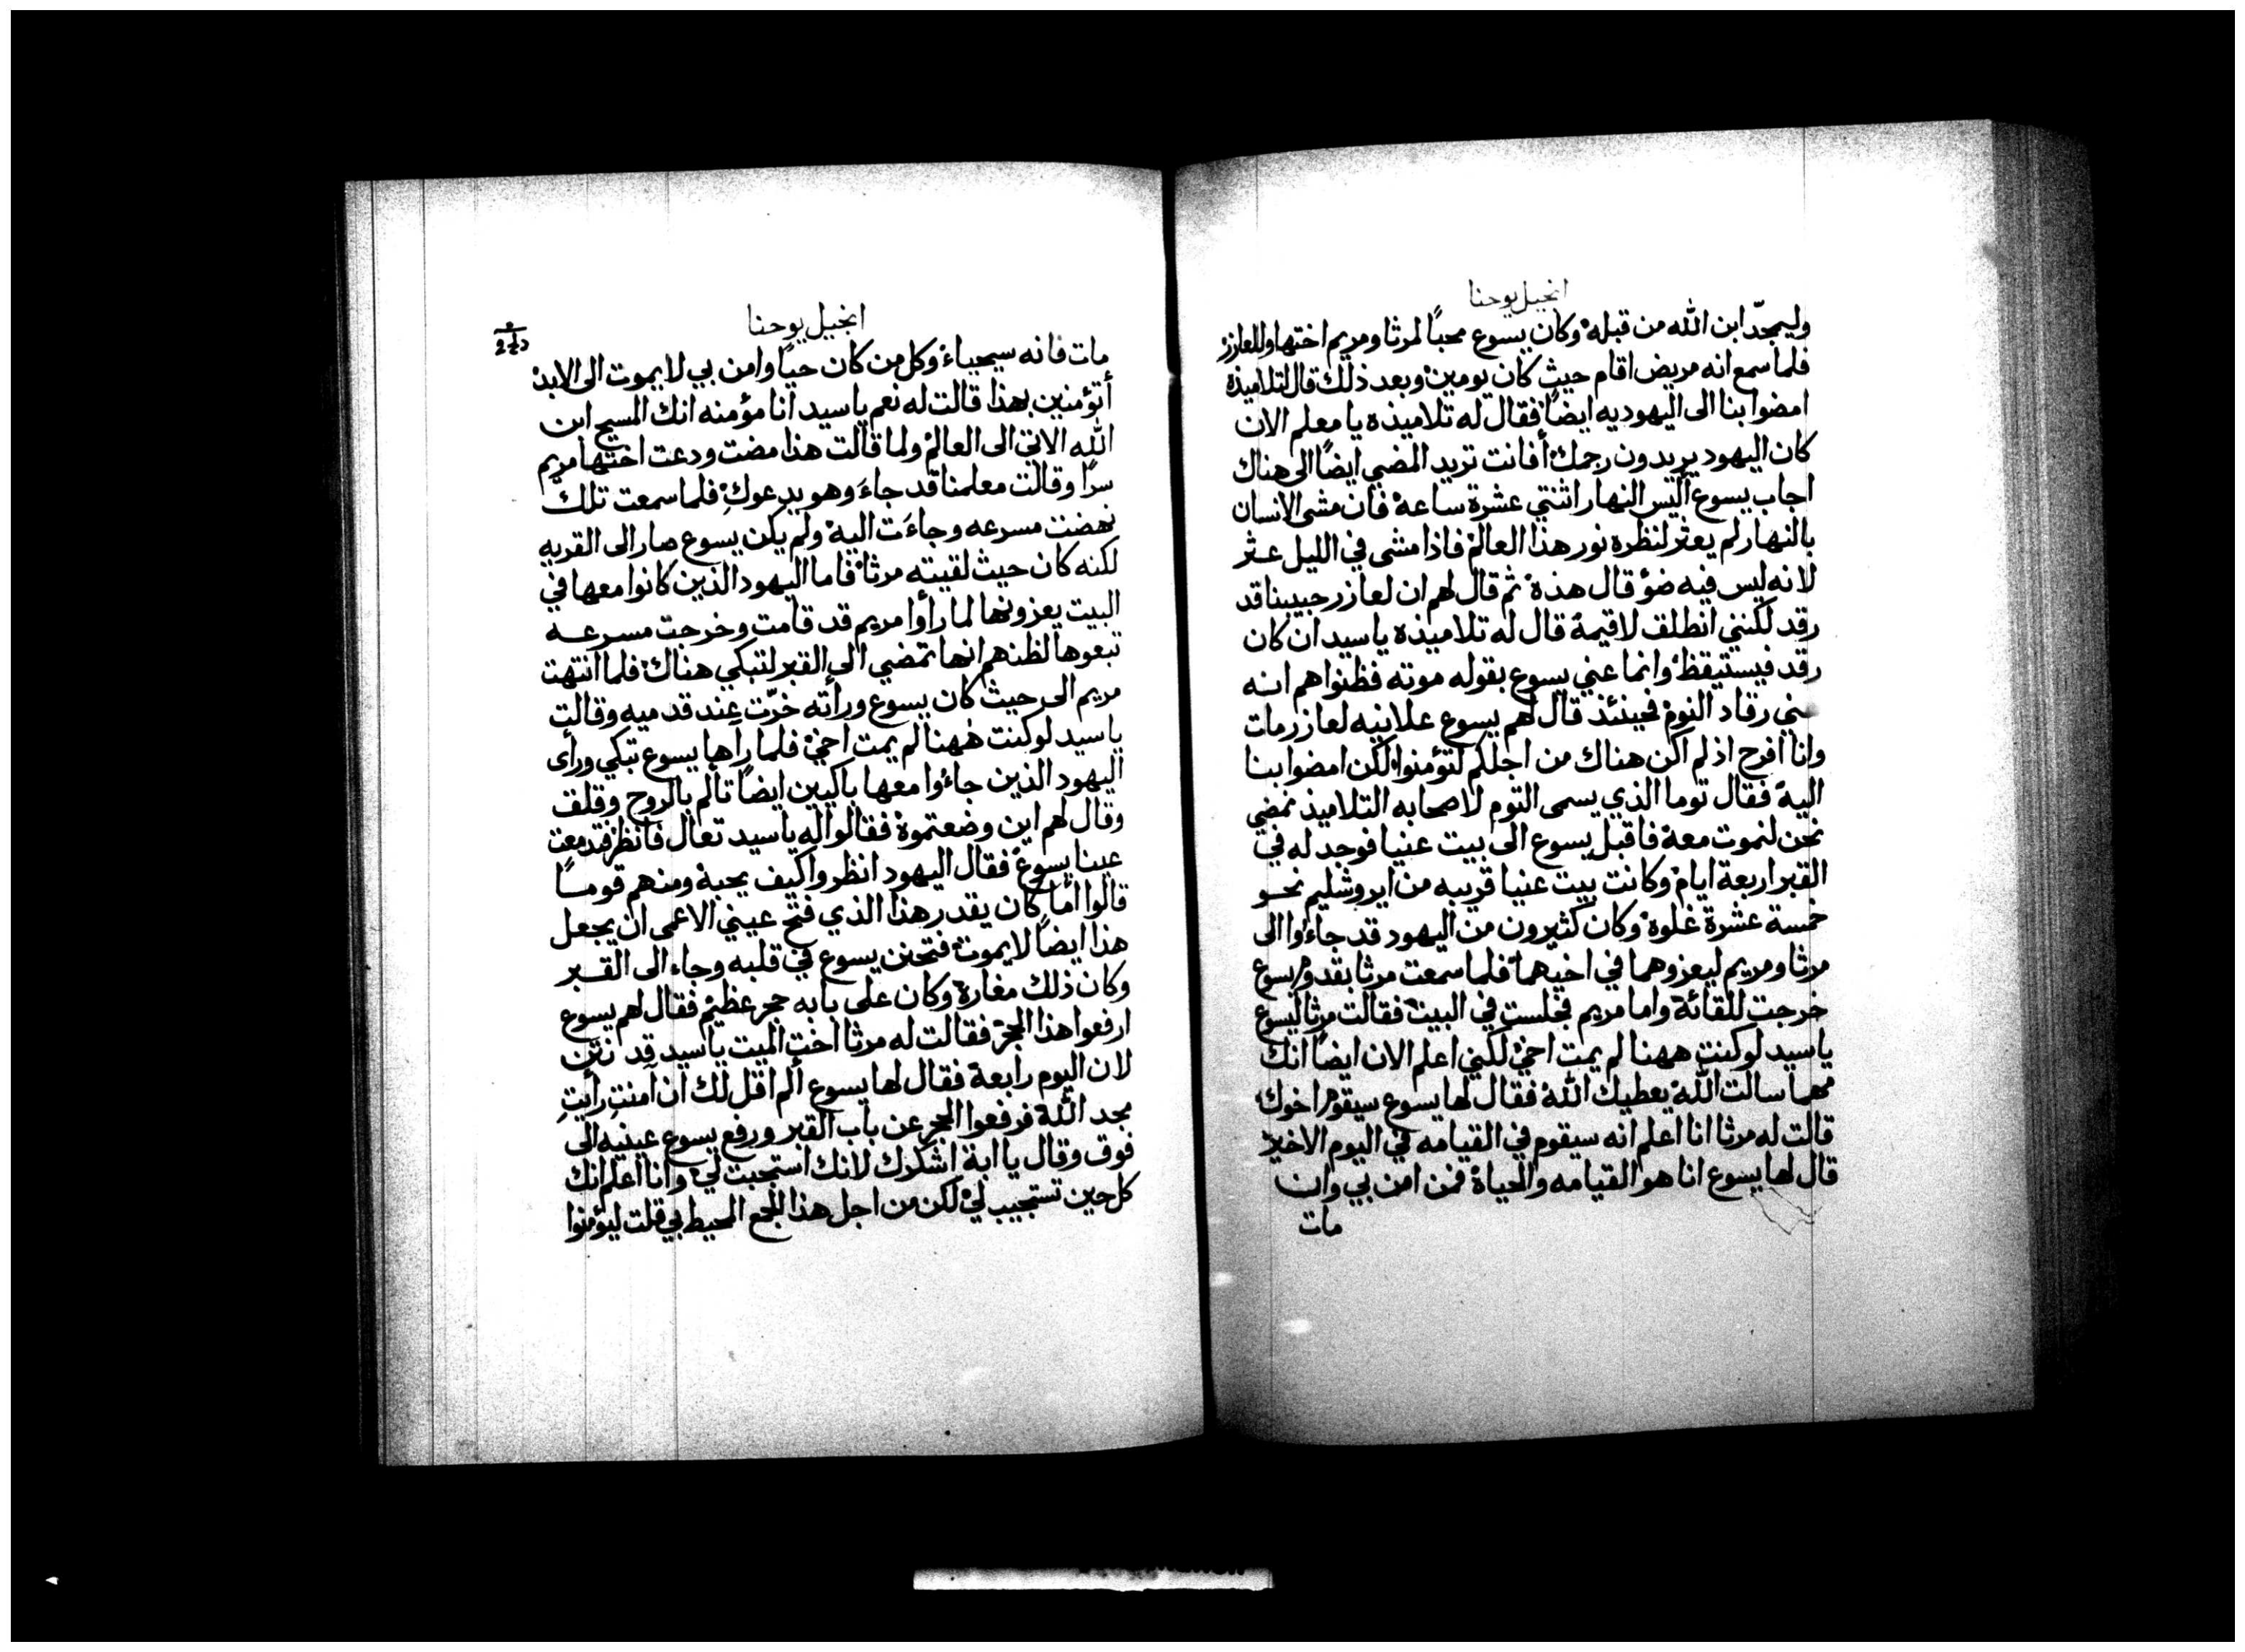 انجيل يوحنا
وليمجدّ ابن الله من قبله وكان يسوع محبًا لمرثا ومريم اختها وللعازر
فلما سمع انه مريض اقام حيث كان يومين وبعد ذلك قال لتلاميذه
امضوا بنا الى اليهوديه ايضًا فقال له تلاميذه يا معلم الان
كان اليهود يريدون رجمك أفانت تريد المضي ايضًا الى هناك
اجاب يسوع أليس النهار اثنتي عشرة ساعة فان مشى الانسان
بالنهار لم يعثر لنظره نور هذا العالم فاذا مشى في الليل عثر
لانه ليس فيه ضؤ قال هذه ثم قال لهم ان لعازر حبيبنا قد
رقد لكنني انطلق لاقيمة قال له تلاميذه يا سيد ان كان
رقد فيستيقظ وانما عني يسوع بقوله موته فظنوا هم انه
عني رقاد النوم فحينئذ قال لهم يسوع علانيه لعازر مات
وانا افرح اذ لم اكن هناك من اجلكم لتؤمنوا لكن امضوا بنا
اليه فقال توما الذي يسمى التوم لاصحابه التلاميذ نمضي
نحن لنموت معه فاقبل يسوع الى بيت عنيا فوجد له في
القبر اربعة ايام وكانت بيت عنيا قريبه من ايروشليم نحو
خمسة عشرة غلوة وكان كثيرون من اليهود قد جاءوا الى
مرثا ومريم ليعزوهما في اخيهما فلما سمعت مرثا بقدوم يسوع
خرجت للقائة واما مريم فجلست في البيت فقالت مرثا ليسوع
يا سيد لو كنت ههنا لم يمت اخي لكني اعلم الان ايضًا انك
مهما سالت الله يعطيك الله فقال لها يسوع سيقوم اخوك
قالت له مرثا انا اعلم انه سيقوم في القيامه في اليوم الاخير
قال لها يسوع انا هو القيامه والحياة فمن امن بي وان
مات
انجيل يوحنا
مات فانه سيحياء وكل من كان حيًا وامن بي لا يموت الى الابد
أتؤمنين بهذا قالت له نعم يا سيد انا مؤمنه انك المسيح ابن
الله الاتي الى العالم ولما قالت هذا مضت ودعت اختها مريم
سرًا وقالت معلمنا قد جاءَ وهو يدعوكِ فلما سمعت تلك
نهضت مسرعه وجاءَت اليه ولم يكن يسوع صار الى القريه
لكنه كان حيث لقيته مرثا فاما اليهود الذين كانوا معها في
البيت يعزونها لما رأوا مريم قد قامت وخرجت مسرعه
تبعوها لظنهم انها تمضي الى القبر لتبكي هناك فلما انتهت
مريم الى حيث كان يسوع ورأته خرّت عند قدميه وقالت
يا سيد لو كنت ههنا لم يمت اخي فلما رآها يسوع تبكي ورأى
اليهود الذين جاءوا معها باكيين ايضًا تألم بالروح وقلق
وقال لهم اين وضعتموه فقالوا له يا سيد تعال فانظر فتدمعت
عينا يسوع فقال اليهود انظروا كيف يحبة ومنهم قومًا
قالوا أما كان يقدر هذا الذي فتح عيني الاعمى ان يجعل
هذا ايضًا لا يموت فتحنن يسوع في قلبه وجاء الى القبر
وكان ذلك مغارة وكان على بابه حجر عظيم فقال لهم يسوع
ارفعوا هذا الحجر فقالت له مرثا اخت الميت يا سيد قد نتن
لان اليوم رابعة فقال لها يسوع ألم اقل لك ان آمنتِ رأيتِ
مجد الله فرفعوا الحجر عن باب القبر ورفع يسوع عينيه الى
فوق وقال يا ابة اشكرك لانك استجبت لي وانا اعلم انك
كل حين تستجيب لي لكن من اجل هذا الجمع المحيط بي قلت ليؤمنوا